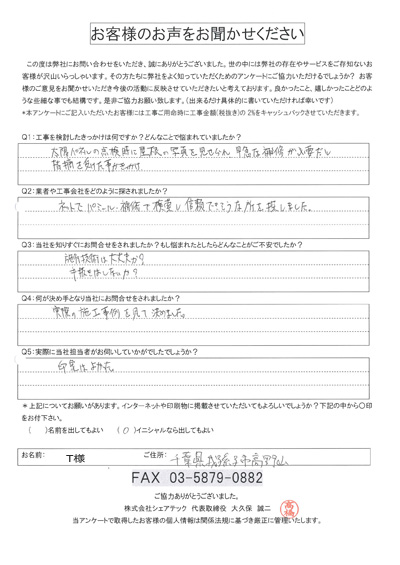 お客様のお声をお聞かせください
この度は弊社にお問い合わせをいただき、誠にありがとうございました。世の中には弊社の存在やサービスをご存知ないお
客様が沢山いらっしゃいます。その方たちに弊社をよく知っていただくためのアンケートにご協力いただけるでしょうか？ お客
様のご意見をお聞かせいただき今後の活動に反映させていただきたいと考えております。良かったこと、嬉しかったことどのよ
うな些細な事でも結構です。是非ご協力お願い致します。（出来るだけ具体的に書いていただければ幸いです）
*本アンケートにご記入いただいたお客様には工事ご用命時に工事金額(税抜き)の 2%をキャッシュバックさせていただきます。
Q1：工事を検討したきっかけは何ですか？どんなことで悩まれていましたか？
太陽パネルの点検時に屋根の写真を見せられ 早急な補修が必要だと
指摘を受けた事がきっかけ
Q2：業者や工事会社をどのように探されましたか？
ネットで 補修で検索し信頼できそうな所を探しました。
Q3：当社を知りすぐにお問合せをされましたか？もし悩まれたとしたらどんなことがご不安でしたか？
施工技術は大丈夫か？
手抜きはしないか？
Q4：何が決め手となり当社にお問合せをされましたか？
実際の施工事例を見て決めました。
Q5：実際に当社担当者がお伺いしていかがでしたでしょうか？
印象はよかった。
＊上記についてお願いがあります。インターネットや印刷物に掲載させていただいてもよろしいでしょうか？下記の中から〇印
をお付下さい。
（　）名前を出してもよい （〇）イニシャルなら出してもよい
お名前： T様 ご住所： 千葉県我孫子市高野山
FAX 03-5879-0882
ご協力ありがとうございました。
株式会社シェアテック 代表取締役 大久保 誠二 高橋
当アンケートで取得したお客様の個人情報は関係法規に基づき厳正に管理いたします。